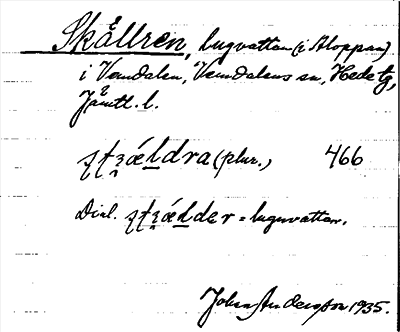 Skållren, lugvatten (i Aloppan)
i Vemdalen, Vemdalens sn, Hede tg,
Jämtl. l.
ʂʈʐǽldra (plur.) 466
Dial. ʂʈʐǽlder = lugnvatten.
Johan Andersson 1935.